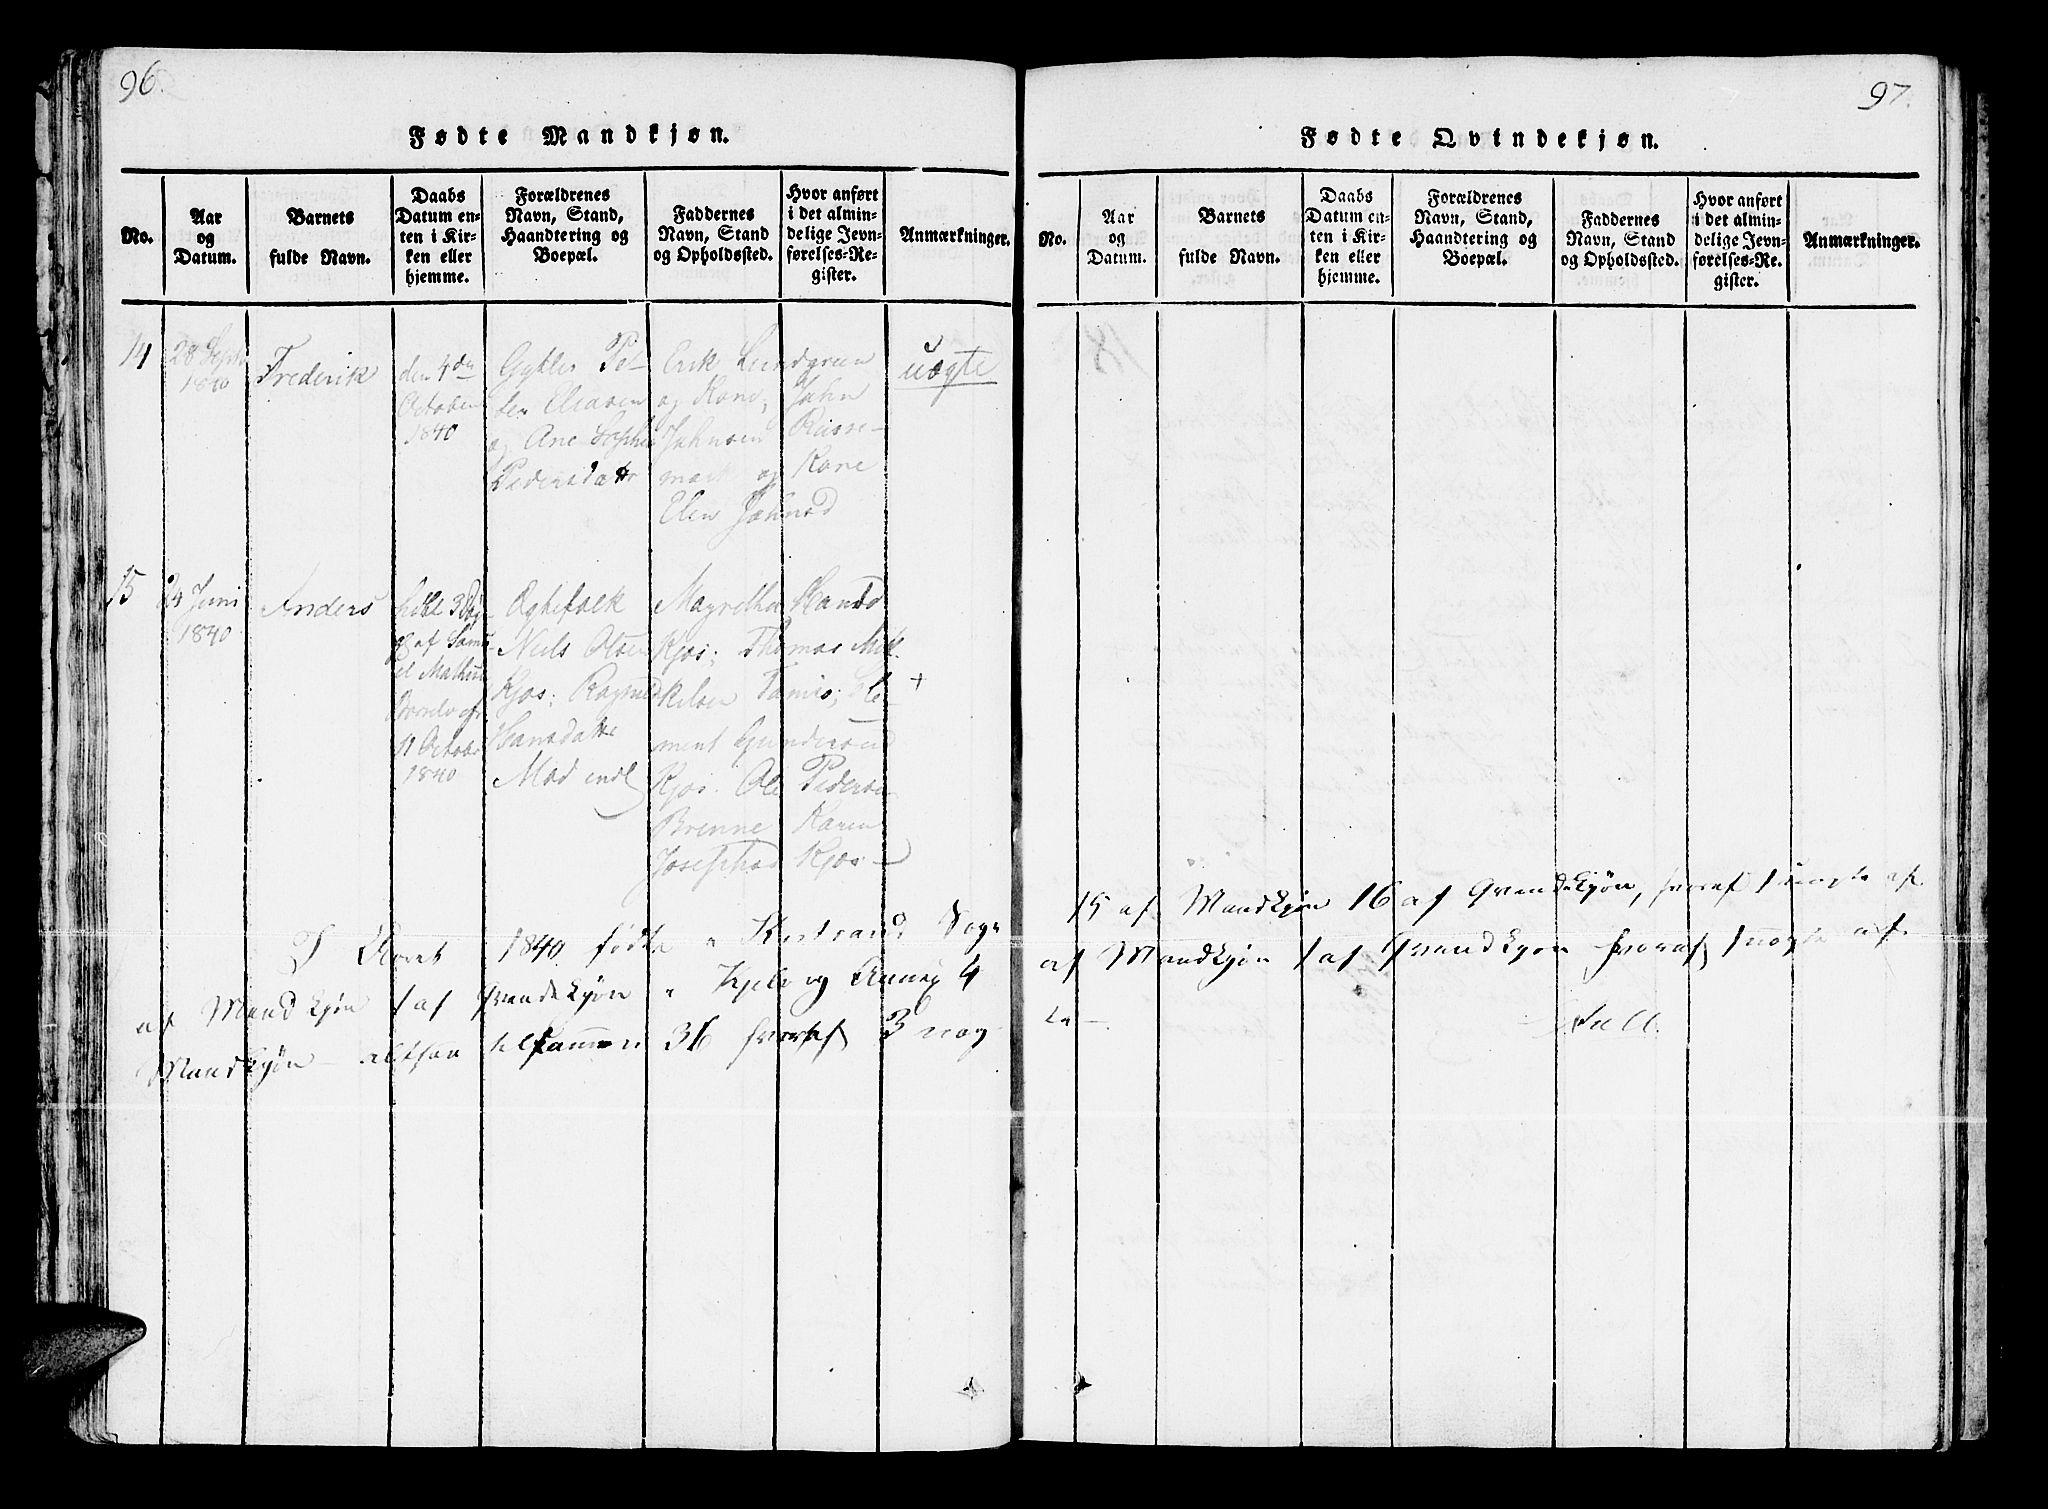 96.
Fødte Mandkjøn.
No.
Aar
og
Datum.
Barnets
fulde Navn.
Daabs
Datum en-
ten i Kir-
ken eller
hjemme.
Forældrenes
Navn, Stand,
Haandtering og
Boepæl.
Faddernes
Navn, Stand
og Opholdssted.
Hvor anført
i det almin-
delige Jevn-
førelses-Re-
gister.
Anmærkninger.
14
28 Septr
1840
Frederik
den 4de
October
1840
Pe-
ter Eliasen
og Ane Sophie
Pedersdatr
Erik Lundgreen
og Kone, John
Johnsen Russe-
mark og Kone
Elen Johnsd
uægte
15
24 Juni
1840
Anders
af Samu-
el Mathis
11 October
1840
Ægtefolk
Niels Olsen
Kjos; Ragnild
Hansdattr
Magretha Hansd
Kjos; Thomas Mik-
kelsen Tamso; Cle-
ment Gundersen
Kjos. Ole Pedersen
Brenne Karen
Josephsd Kjos
+
I Aaret 1840 fødte " Kistrand Sogn
af Mandkjøn 1 af Qvindekjøn " Kjelvog Annex 4
Mandkjøn - altsaa tilsammen 36 hvoraf 3 uæg-
97.
Fødte Qvindekjøn.
No.
Aar
og
Datum.
Barnets
fulde Navn.
Daabs
Datum en-
ten i Kir-
ken eller
hjemme.
Forældrenes
Navn, Stand,
Haandtering og
Boepæl.
Faddernes
Navn, Stand
og Opholdssted.
Hvor anført
i det almin-
delige Jevn-
førelses-Re-
gister.
Anmærkninger.
15 af Mandkjøn 16 af Qvindekjøn, hvoraf 1 uægte af
af Mandkjøn 1 af Qvindkjøn hvoraf 1 uægte af
te -